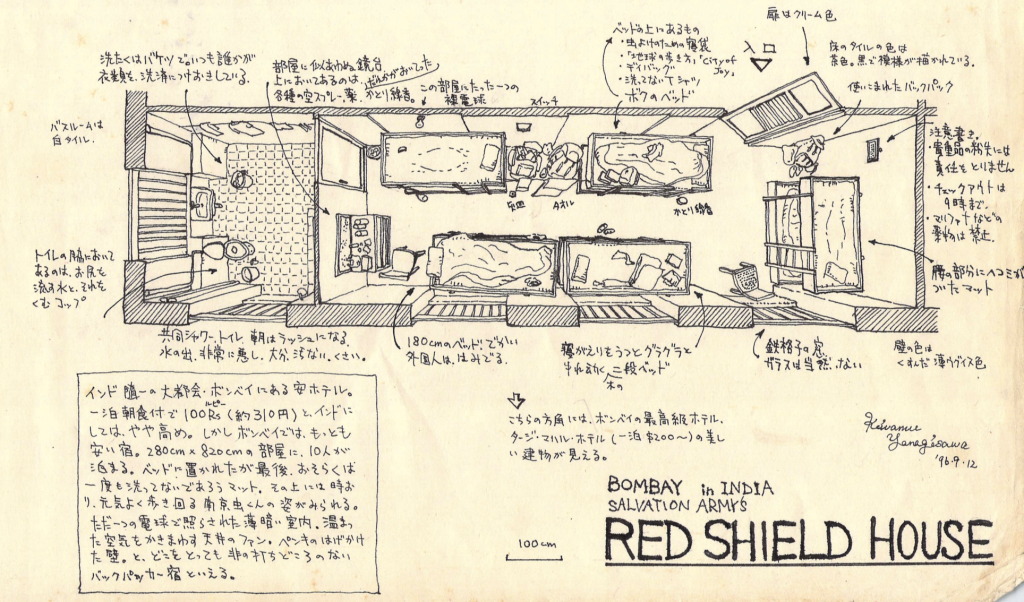 扉はクリーム色
ベッドの上にあるもの
・虫よけのための寝袋
・「地球の歩き方」「City of
Joy」
・デイバッグ
・洗ってないTシャツ
ボクのベッド
入口
床のタイルの色は
茶色。黒で模様が描かれている。
使いこまれたバックパック
洗たくはバケツで。いつも誰かが
衣類を、洗濯につけおきしている。
部屋に似あわぬ鏡台
上においてあるのは、だれかがおいてった
各種の空スプレー、薬、かとり線香。
この部屋にたった一つの
裸電球
スイッチ
バスルームは
白タイル.
注意書き。
・貴重品の紛失には
責任をとりません
・チェックアウトは
9時まで。
・マリファナなどの
薬物は禁止.
タオル
かとり線香
トイレの脇において
あるのは、お尻を
流す水と、それを
くむコップ
腰の部分にヘコミが
ついたマット
共同シャワー、トイレ 朝はラッシュになる。
水の出、非常に悪し。大分、きたない、くさい。
180cmのベッド。でかい
外国人は、はみでる。
寝がえりをうつとグラグラと
木の
二段ベッド
鉄格子の窓.
ガラスは当然、ない
壁の色は
くすんだ薄ウグイス色
インド随一の大都会・ボンベイにある安ホテル。
ルピー
一泊朝食付で100Rs(約310円)と、インドに
しては、やや高め。しかしボンベイでは、もっとも
安い宿。280cm×820cmの部屋に、10人が
泊まる。ベッドに置かれたが最後、おそらくは
一度も洗ってないであろうマット。その上には時お
り、元気よく歩き回る南京虫くんの姿がみられる。
ただ一つの電球で照らされた薄暗い室内。温まっ
た空気をかきまわす天井のファン。ペンキのはげかけ
た壁。と、どこをとっても非の打ちどころのない
バックパッカー宿といえる。
こちらの方角には、ボンベイの最高級ホテル、
タージ・マハル・ホテル(一泊$200〜)の美し
い建物が見える。
Yanagisawa
'96.9.12
BOMBAY in INDIA
SALVATION ARMY'S
RED SHIELD HOUSE
100cm